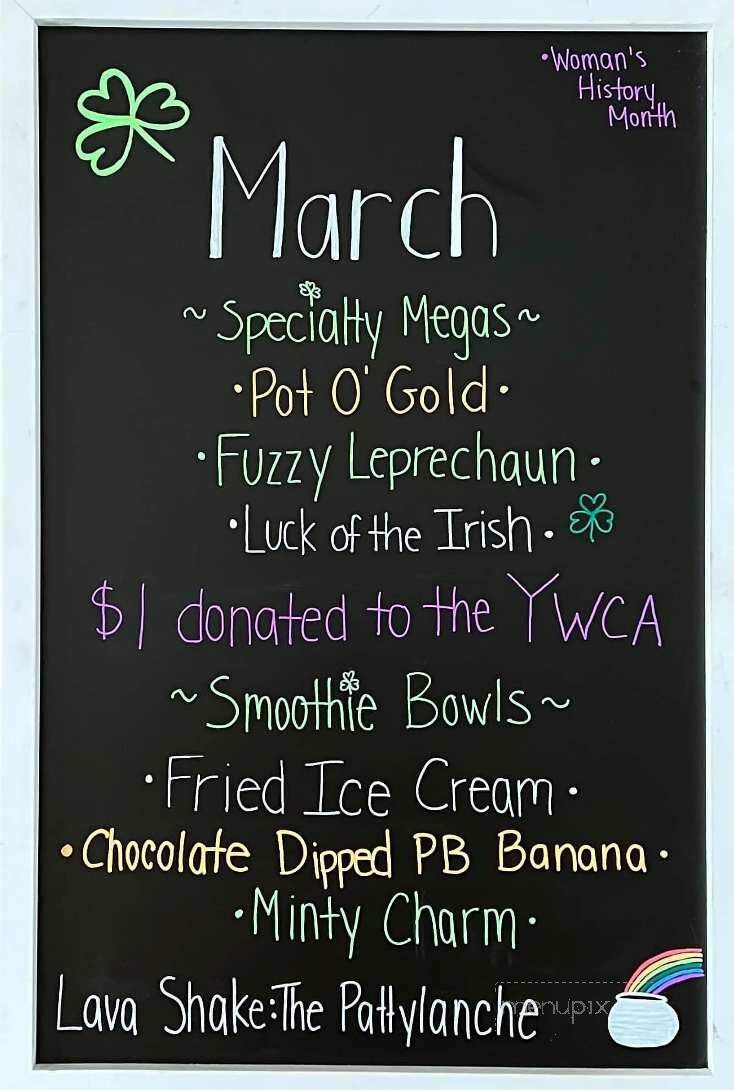 •Woman's
History
Month
March
~Specialty Megas~
•Pot O' Gold•
•Fuzzy Leprechaun•
•Luck of the Irish•
$1 donated to the YWCA
~Smoothie Bowls~
•Fried Ice Cream•
•Chocolate Dipped PB Banana•
•Minty Charm•
Lava Shake:The Pattylanche
menupix